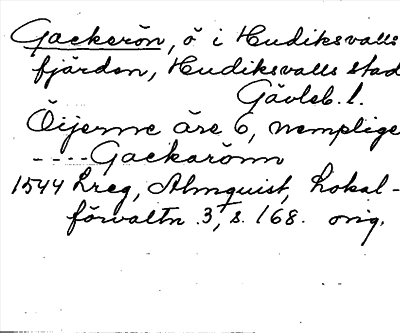 Gackerön, ö i Hudiksvalls
fjärden, Hudiksvalls stad
Gävleb. l.
Öijerne äre 6, nemplige
----Gackarönn
1544 Lreg, Almquist, Lokal-
förvaltn. 3, s. 168. orig.